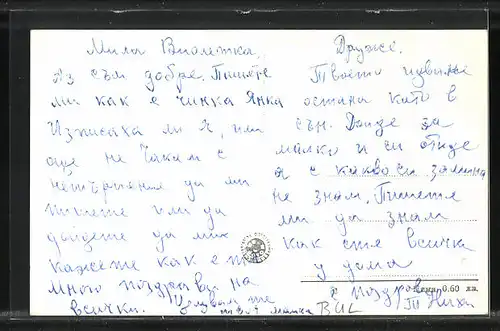 Мила Виолетка,
Аз съм добре. Пишете
ми как е чинка Янка
Изписаха ли я, или
още не чакам с
нетърпение да ми
пишете или да
дойдете да ми
кажете как е тя.
Много поздрави на
всички. Целувам те
твоя майка
Друже.
Твоето идване
остана като в
сън. Дойде за
малко и си отиде
а с какво си замина
не знам. Пишете
ми да знам
как сте всички
у дома
Цена 0.60 лв.
поздрави
BUL